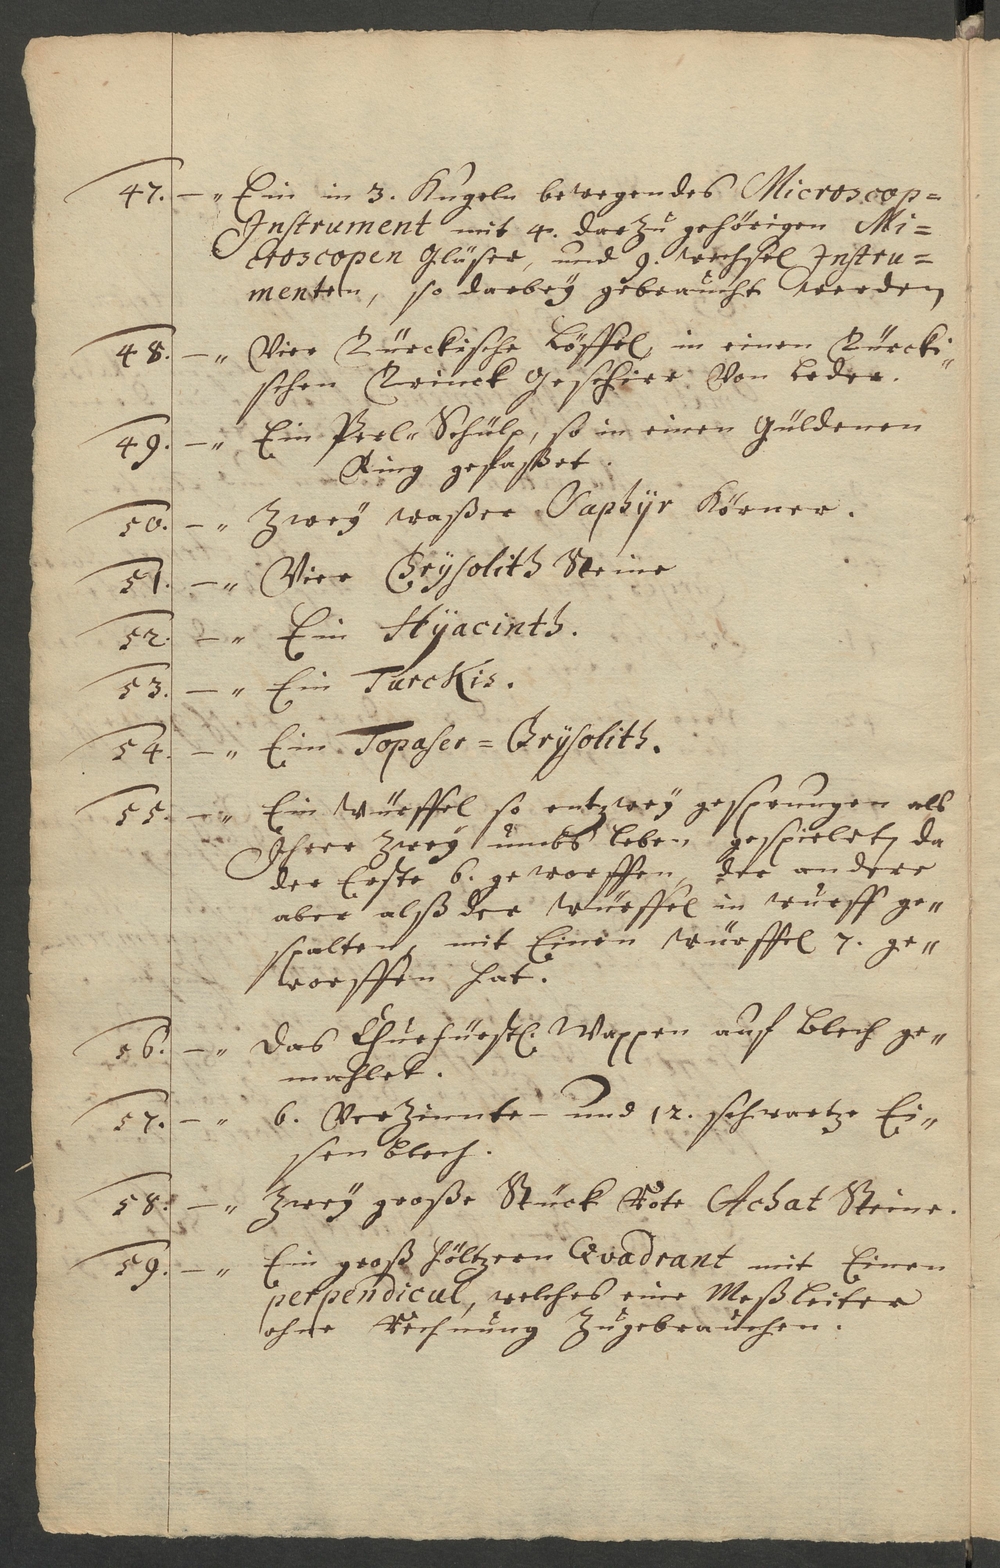 47. — „ Ein in 3. Kugeln bewegendes Microscop=
Instrument mit 4. darzu gehörigen Mi=
croscopen Gläser, und 9. wechsel Instru=
menten, so darbey gebraucht werden,
48. — „ Vier Türckische Löffel, in einen Türcki„
schen Trinck Geschirr Von Leder.
49. — „ Ein Perl„ Schülp, so in einen Güldenen
Ring gefaßet.
50. — „ Zwey waßer Saphÿr Körner.
51. — „ Vier Crysolith Steine
52. — „ Ein Hÿacinth.
53. — „ Ein TurcKis.
54. — „ Ein Topaser = Crÿsolith.
55. — „ Ein Würffel so entzwey gesprungen als
Ihrer Zwey umbs Leben gespielet, da
der Erste 6. geworffen, der andere
aber alß der Würffel in wurff ge„
spalten, mit Einen Würffel 7. ge„
worffen hat.
56. — „ Das Churfürstl. Wappen auf Blech ge„
mahlet.
57. — „ 6. Verzinnte- und 12. schwartze Ei„
senblech.
58. — „ Zwey große Stück Rote Achat Steine.
59. — „ Ein groß höltzern Qvadrant mit Einen
perpendicul, welches eine Meßleiter
ohne Rechnung Zugebrauchen.